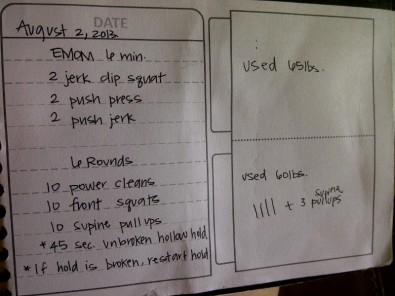 DATE
August 2, 2013
EMOM 6 min.
2 jerk dip squat
2 push press
2 push jerk
6 Rounds
10 power cleans
10 front squats
10 supine pull ups
*45 sec. unbroken hollow hold
*If hold is broken, restart hold
used 65lbs.
used 60lbs.
|||| + 3 supine pullups